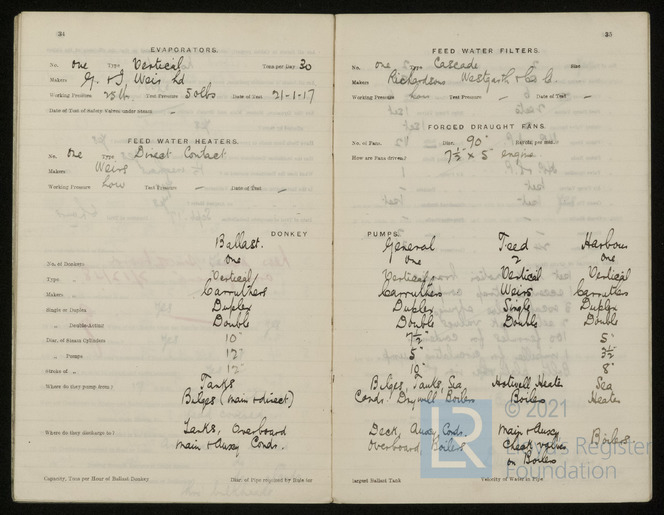 34
EVAPORATORS.
No. one Type Vertical Tons per Day 30
Makers G. & J. Weir Ld
Working Pressure 25 lb. Test Pressure 50 lbs Date of Test 21-1-17
Date of Test of Safety Valves under Steam —
FEED WATER HEATERS.
No. one Type Direct Contact
Makers Weirs
Working Pressure Low Test Pressure — Date of Test —
DONKEY
Ballast.
No. of Donkeys one
Type Vertical
Makers Carruthers
Single or Duplex Duplex
„ Double-Acting Double
Diar. of Steam Cylinders 10"
„ Pumps 12"
Stroke of „ 12"
Where do they pump from? Tanks
Bilges (main & direct)
Where do they discharge to? Tanks, Overboard
main & Auxy Conds.
Capacity, Tons per Hour of Ballast Donkey Diar. of Pipe required by Rule for
35
FEED WATER FILTERS.
No. one Type Cascade Size
Makers Richardsons Westgarth & Co Ld.
Working Pressure Low Test Pressure — Date of Test —
FORCED DRAUGHT FANS.
No. of Fans. Diar. 90" Revs. per min.
How are Fans driven? 7½" x 5" engine
PUMPS.
General Feed Harbour
one 2 one
Vertical Vertical Vertical
Carruthers Weirs Carruthers
Duplex Single Duplex
Double Double Double
7½" 5"
5" 3½"
10" 8"
Bilges, Tanks, Sea Hotwell Heater Sea
Conds. Boilers Boilers Heater
Deck, Auxy. Conds. Main & Auxy Boilers.
Overboard, Boilers Check valves
on Boilers
Largest Ballast Tank Velocity of Water in Pipe
LR © 2021
Lloyd's Register
Foundation